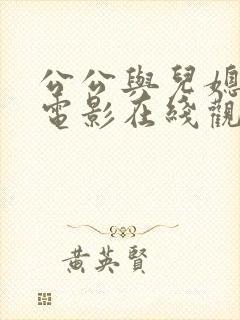 公公與兒媳
電影在綫觀
黃英賢